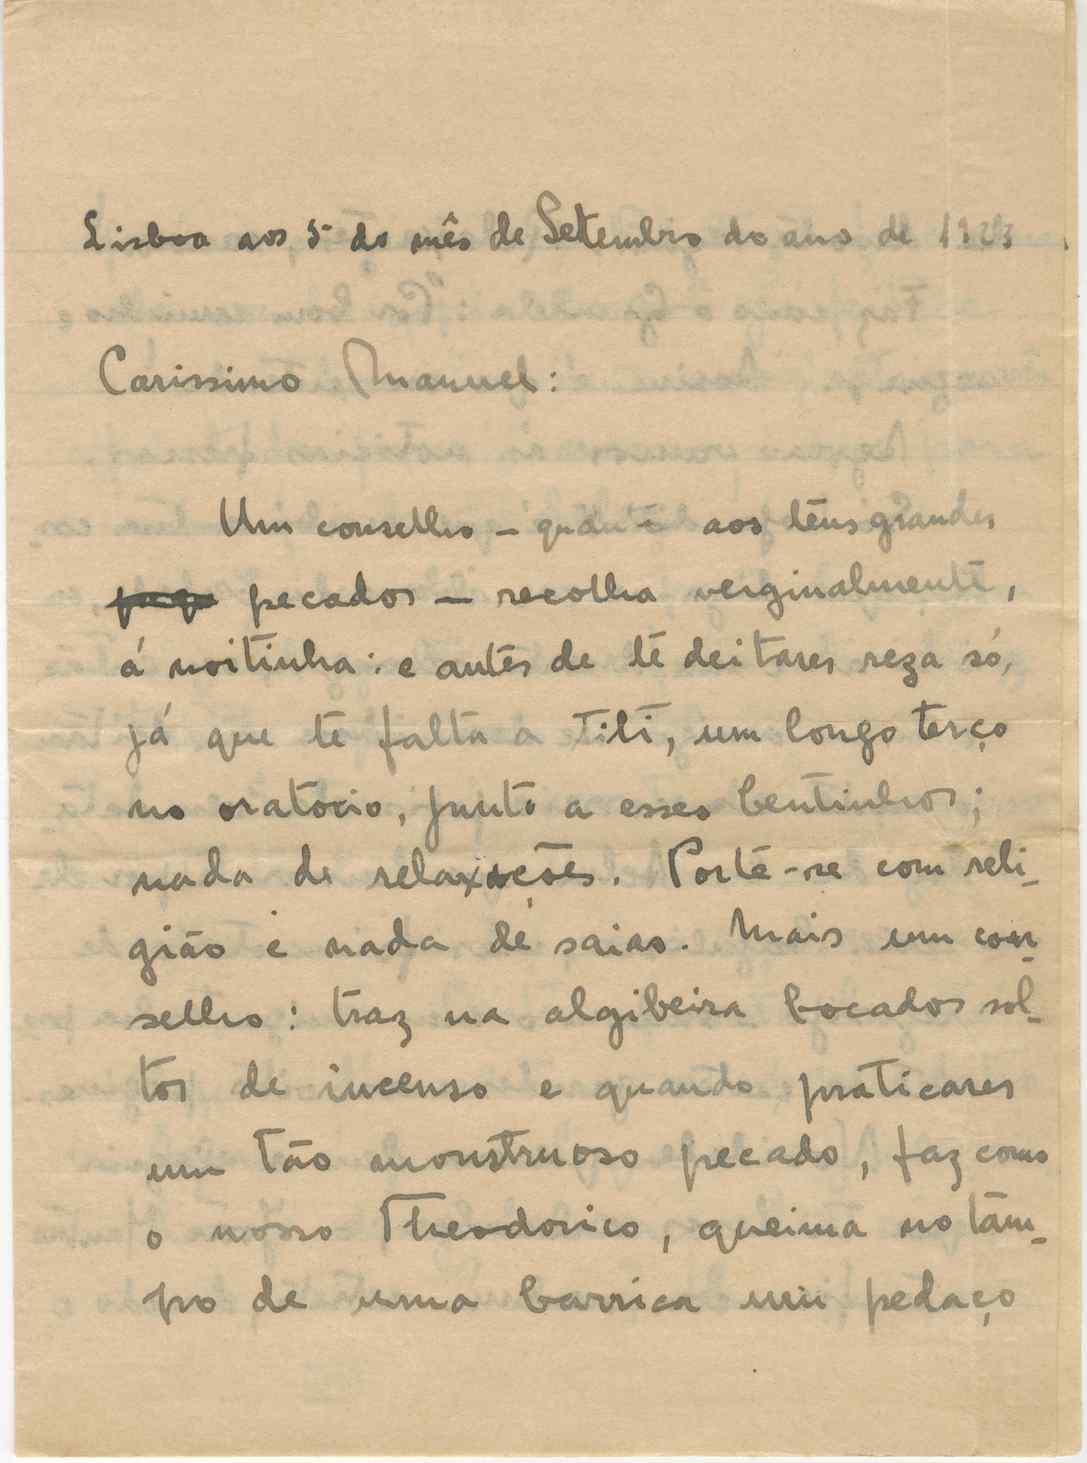 Lisboa aos 5 do mês de Setembro do ano de 1923
Carissimo Manuel:
Um conselho – quanto aos teus grandes
pecados – recolha verginalmente,
á noitinha: e antes de te deitares reza só,
já que te falta a Titi, um longo terço
no oratorio, junto a esses bentinhos;
nada de relaxações. Porte-se com reli-
gião e nada de saias. Mais um con-
selho: traz na algibeira bocados sol-
tos de incenso e quando praticares
um tão monstruoso pecado, faz como
o nosso Theodorico, queima no tam-
po de uma barrica um pedaço